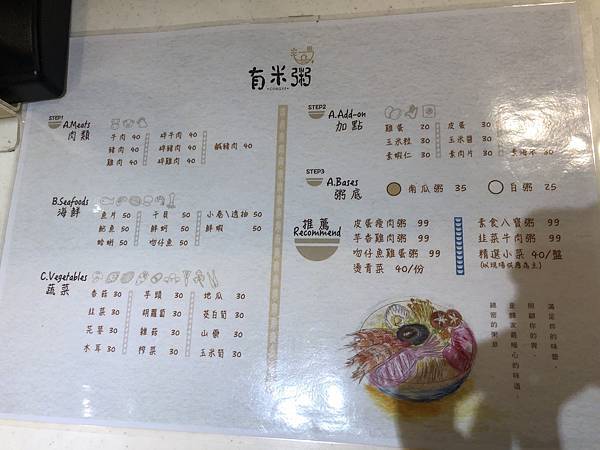 有米粥
·CONGEE·
STEP1
A.Meats
肉類
牛肉 40 碎牛肉 40
豬肉 40 碎豬肉 40 鹹豬肉 40
雞肉 40 碎雞肉 40
B.Seafoods
海鮮
魚片 50 干貝 50 小卷\透抽 50
鮑魚 50 鮮蚵 50 鮮蝦 50
蛤蜊 50 吻仔魚 50
C.Vegetables
蔬菜
香菇 30 芋頭 30 地瓜 30
韭菜 30 胡蘿蔔 30 茭白筍 30
芫荽 30 雞菇 30 山藥 30
木耳 30 榨菜 30 玉米筍 30
STEP2
A.Add-on
加點
雞蛋 20 皮蛋 30
玉米粒 30 玉米醬 30
素蝦仁 30 素肉片 30 素海米 30
STEP3
A.Bases
粥底
南瓜粥 35 白粥 25
推薦
Recommend
皮蛋瘦肉粥 99 素食八寶粥 99
芋香雞肉粥 99 韭菜牛肉粥 99
吻仔魚雞蛋粥 99 精選小菜 40/盤
燙青菜 40/份 (以現場供應為主)
滿足你的味蕾，
照顧你的胃，
是轉家最暖心的味道，
綿密的粥意